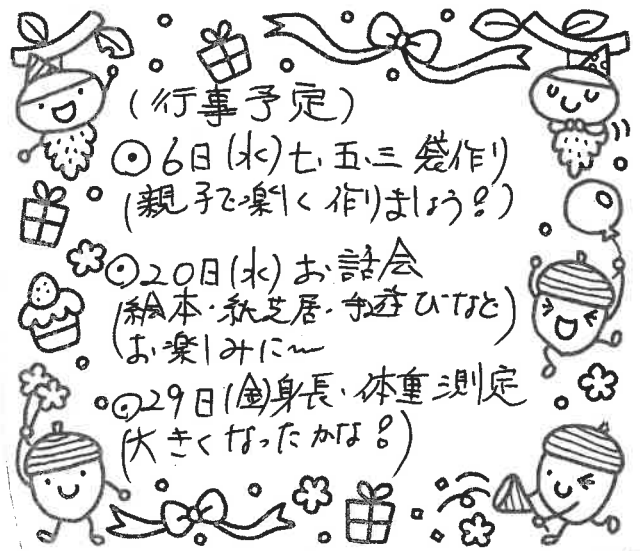 (行事予定)
⦿6日(水)七、五、三 袋作り
(親子で楽しく作りましょう!)
⦿20日(水)お話会
(絵本・紙芝居・手遊びなど)
(お楽しみに〜
⦿29日(金)身長・体重測定
(大きくなったかな!)